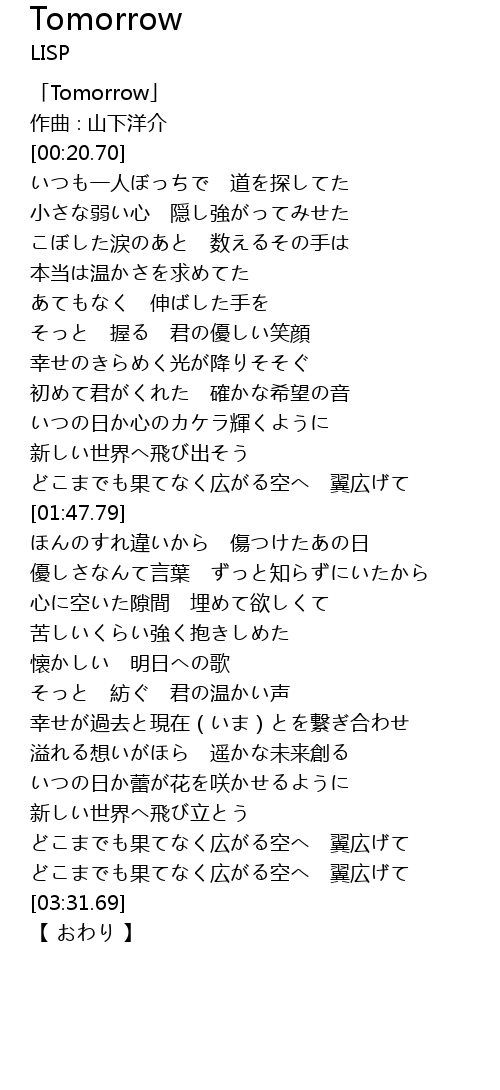 Tomorrow
LISP
「Tomorrow」
作曲 : 山下洋介
[00:20.70]
いつも一人ぼっちで　道を探してた
小さな弱い心　隠し強がってみせた
こぼした涙のあと　数えるその手は
本当は温かさを求めてた
あてもなく　伸ばした手を
そっと　握る　君の優しい笑顔
幸せのきらめく光が降りそそぐ
初めて君がくれた　確かな希望の音
いつの日か心のカケラ輝くように
新しい世界へ飛び出そう
どこまでも果てなく広がる空へ　翼広げて
[01:47.79]
ほんのすれ違いから　傷つけたあの日
優しさなんて言葉　ずっと知らずにいたから
心に空いた隙間　埋めて欲しくて
苦しいくらい強く抱きしめた
懐かしい　明日への歌
そっと　紡ぐ　君の温かい声
幸せが過去と現在 ( いま ) とを繋ぎ合わせ
溢れる想いがほら　遥かな未来創る
いつの日か蕾が花を咲かせるように
新しい世界へ飛び立とう
どこまでも果てなく広がる空へ　翼広げて
どこまでも果てなく広がる空へ　翼広げて
[03:31.69]
【 おわり 】